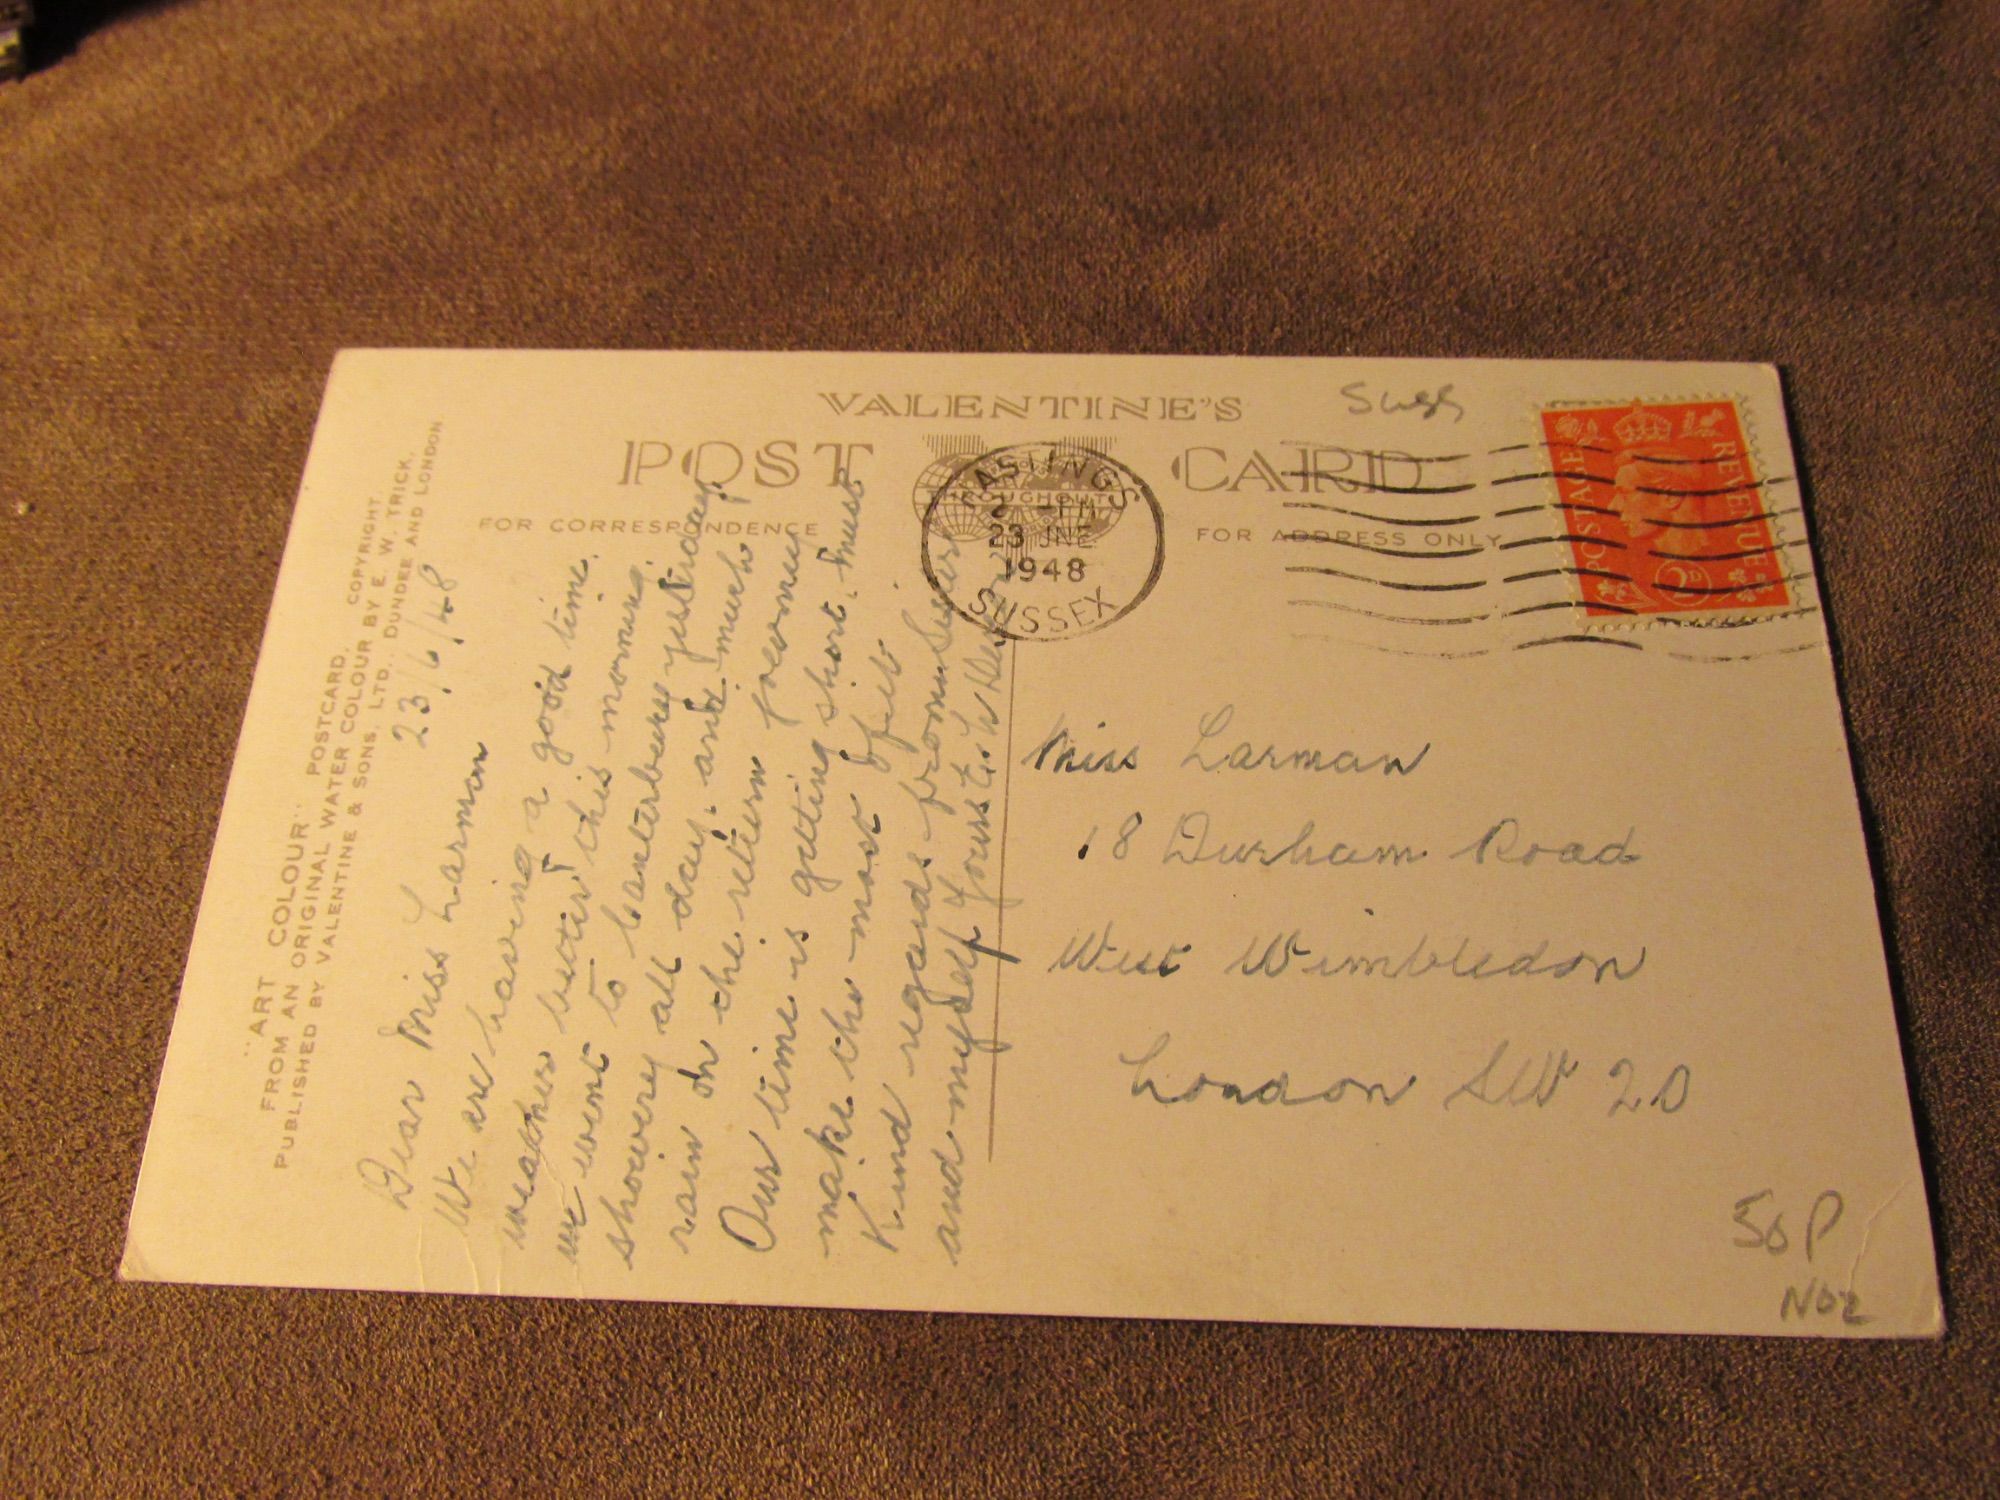 VALENTINE'S
POST CARD
FOR CORRESPONDENCE
FOR ADDRESS ONLY
"ART COLOUR" POSTCARD. COPYRIGHT.
FROM AN ORIGINAL WATER COLOUR BY E. W. TRICK.
PUBLISHED BY VALENTINE & SONS, LTD., DUNDEE AND LONDON
23/6/48
Dear Miss Larman
We are having a good time.
weather better this morning.
we went to Canterbury yesterday,
showery all day, and much
rain on the return journey
Our time is getting short, must
make the most of it.
Kind regards from Sister
and myself Yours E. W
HASTINGS
23 JNE
1948
SUSSEX
Suss
POSTAGE REVENUE
2D
Miss Larman
18 Durham Road
West Wimbledon
London SW 20
50 P